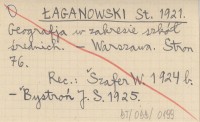 ŁAGANOWSKI St. 1921.
Geografja w zakresie szkół
średnich. - Warszawa. Stron
76.
Rec.: Szafer W. 1924 b.
- Bystroń J. S. 1925.